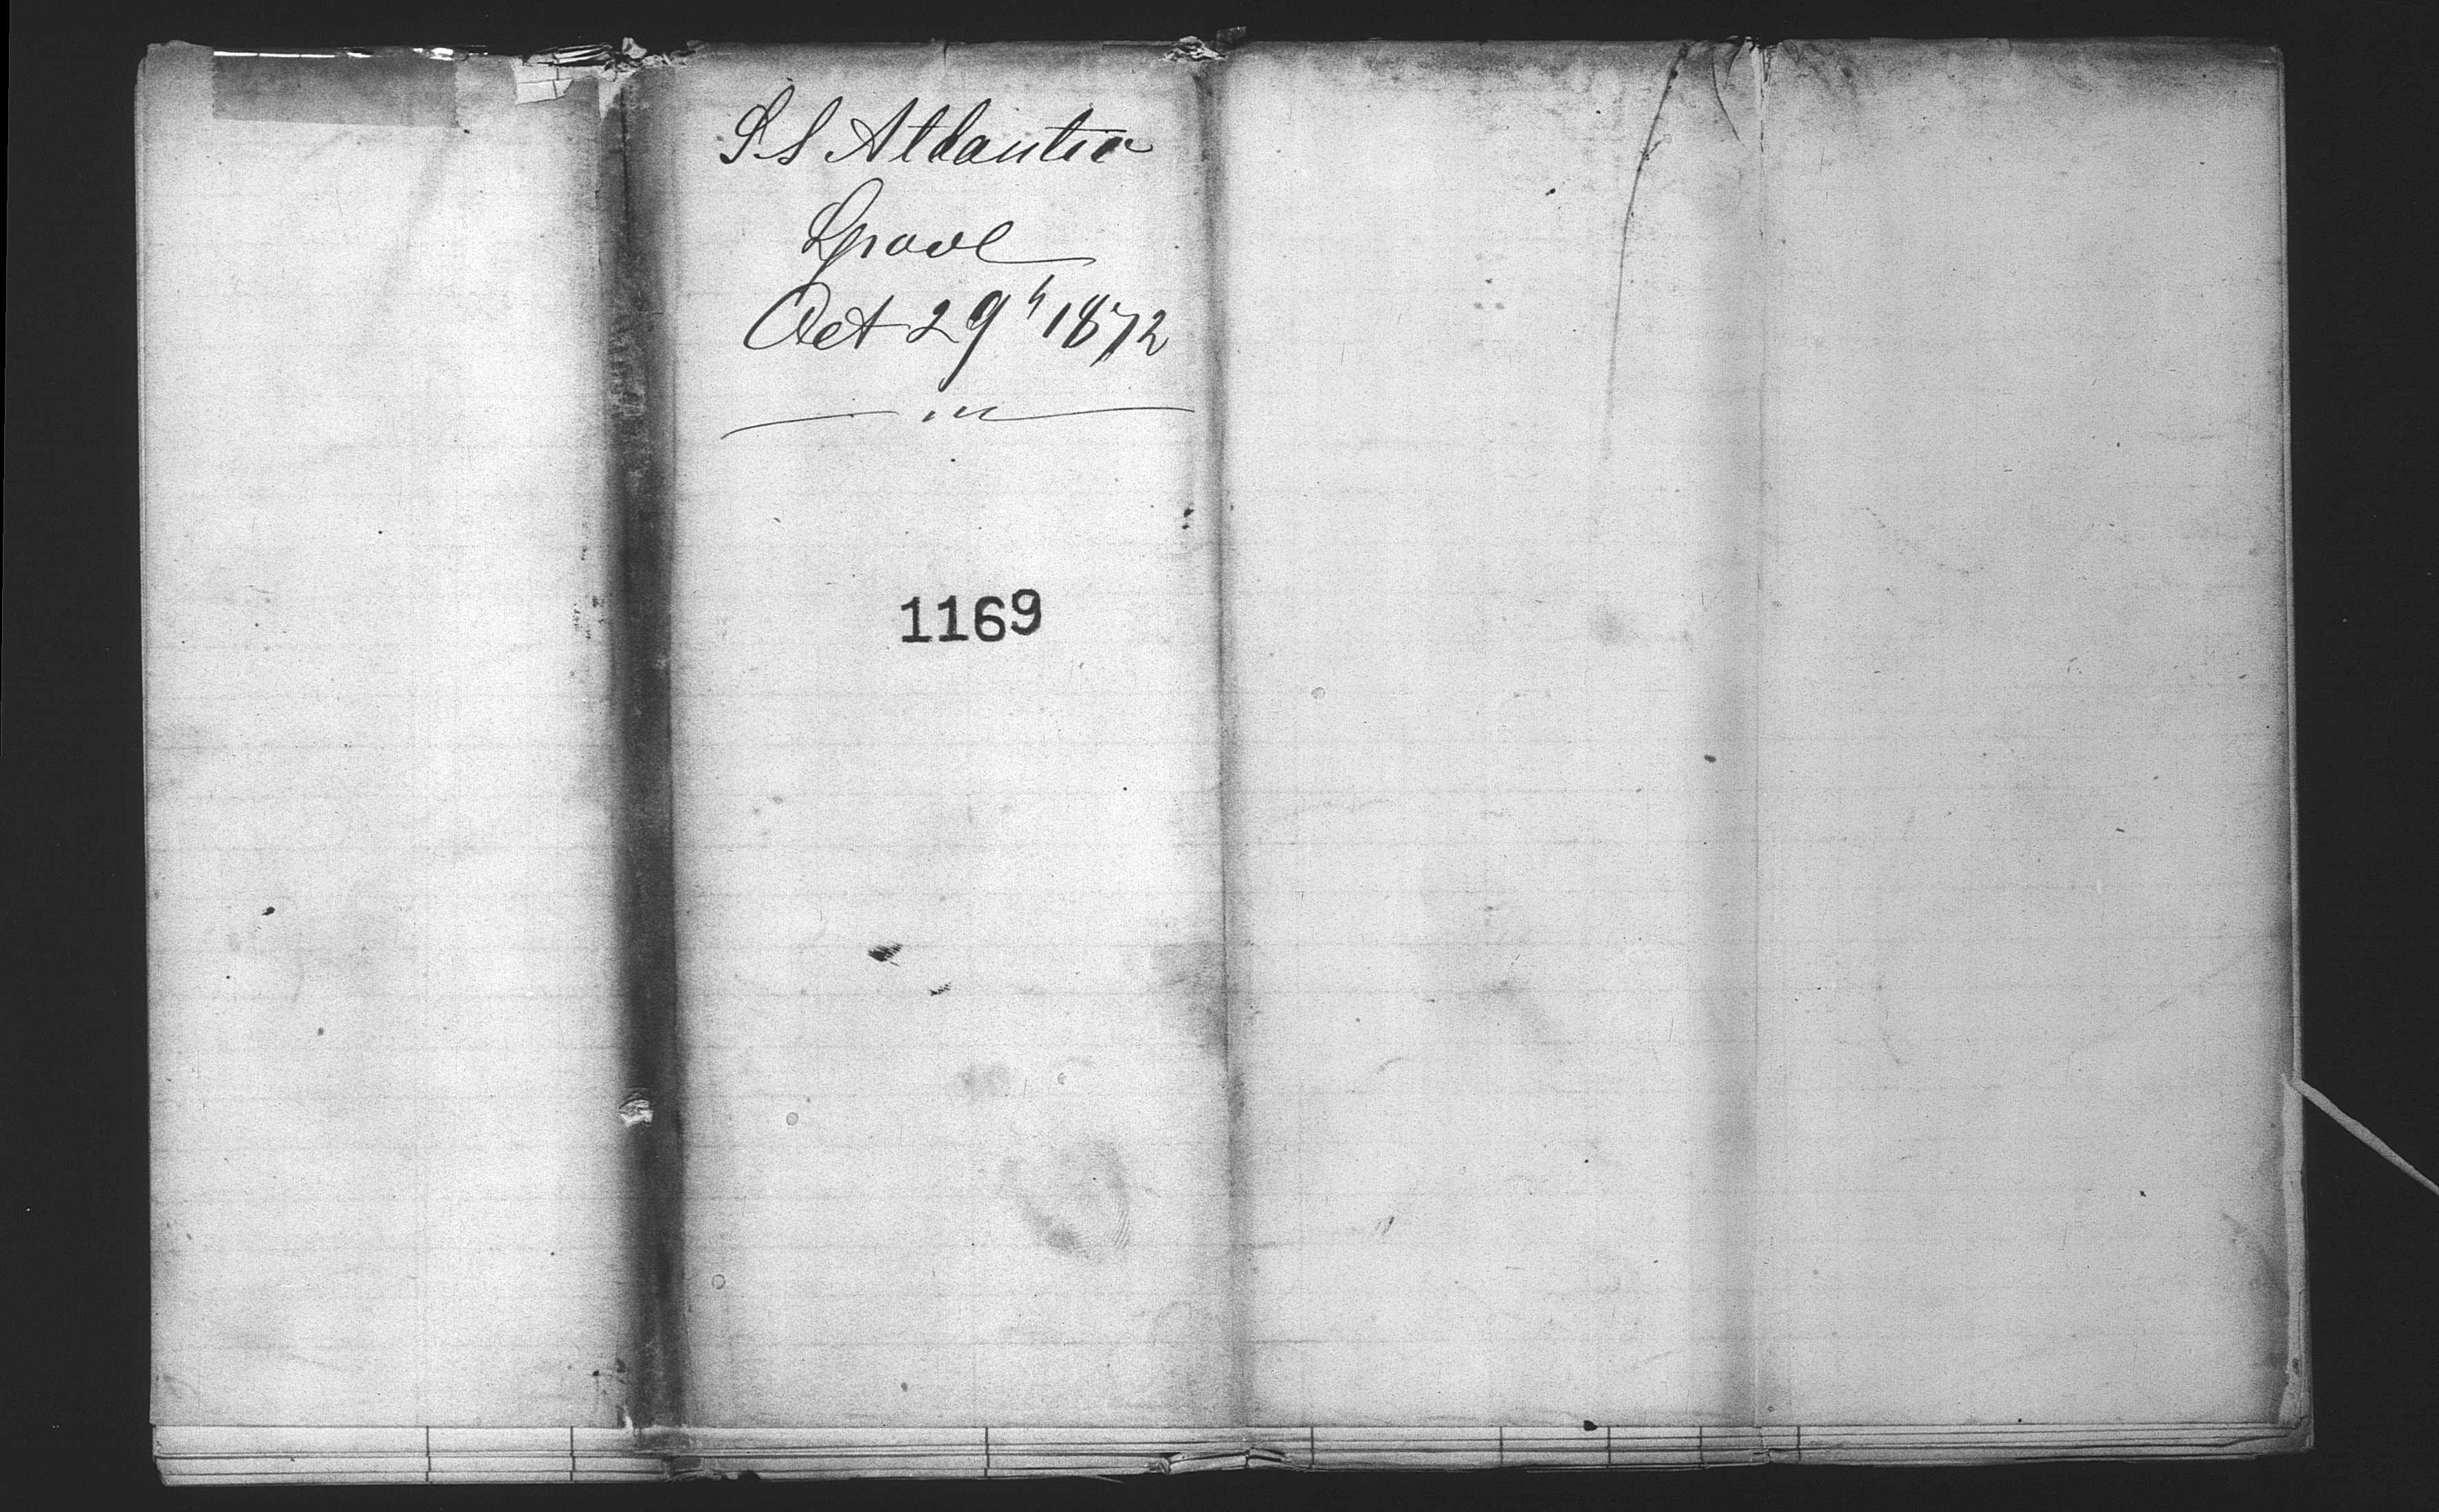 SS Atlantic
Lpool
Oct 29th 1872
1169